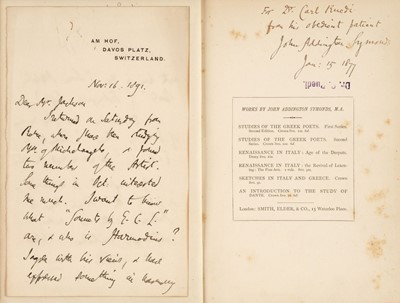 AM HOF,
DAVOS PLATZ,
SWITZERLAND.
Nov: 16. 1891.
Dear Mr. Jackson
I returned on Saturday from
Rome, where I have been studying
of Michelangelo, & found
two numbers of the Artist.
Some things in Oct: interested
me much. I want to know
what "Sonnets by E. C. L."
are, & who is Harmodius?
I agree with his views, & have
expressed something in
For Dr. Carl Ruedi
from his obedient patient
John Addington Symonds
Jan: 15. 1877
WORKS BY JOHN ADDINGTON SYMONDS, M.A.
STUDIES OF THE GREEK POETS. First Series.
Second Edition. Crown 8vo.
STUDIES OF THE GREEK POETS. Second
Series. Crown 8vo.
RENAISSANCE IN ITALY: Age of the Despots.
Demy 8vo.
RENAISSANCE IN ITALY: the Revival of Learn-
ing; The Fine Arts. 2 vols. 8vo.
SKETCHES IN ITALY AND GREECE. Crown
8vo.
AN INTRODUCTION TO THE STUDY OF
DANTE. Crown 8vo.
London: SMITH, ELDER, & CO., 15 Waterloo Place.